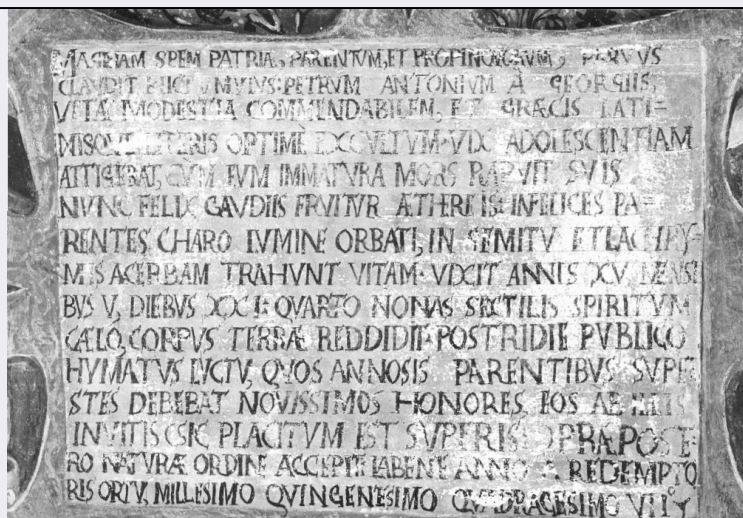 MAGNAM SPEM PATRIÆ, PARENTVM, ET PROPINQVORVM, PARVVS
CLAVDIT HIC TVMVLVS: PETRVM ANTONIVM A GEORGIIS,
VITÆ MODESTIA COMMENDABILEM, ET GRÆCIS LATI=
NISQVE LITERIS OPTIME EXCVLTVM. VIX ADOLESCENTIAM
ATTIGERAT, CVM EVM IMMATVRA MORS RAPVIT SVIS
NVNC FELIX GAVDIIS FRVITVR ÆTHEREIS: INFELICES PA=
RENTES CHARO LVMINE ORBATI, IN GEMITV ET LACHRY=
MIS ACERBAM TRAHVNT VITAM. VIXIT ANNIS XV MENSI
BVS V, DIEBVS XXI: QVARTO NONAS SEXTILIS SPIRITVM
CÆLO, CORPVS TERRÆ REDDIDIT: POSTRIDIE PVBLICO
HVMATVS LVCTV, QVOS ANNOSIS PARENTIBVS SVPER
STES DEBEBAT NOVISSIMOS HONORES, EOS AB
INVITIS (SIC PLACITVM EST SVPERIS) PRÆPOSTE=
RO NATVRÆ ORDINE ACCEPIT. LABENTE ANNO A REDEMPTO
RIS ORTV, MILLESIMO QVINGENTESIMO QVADRAGESIMO VII°